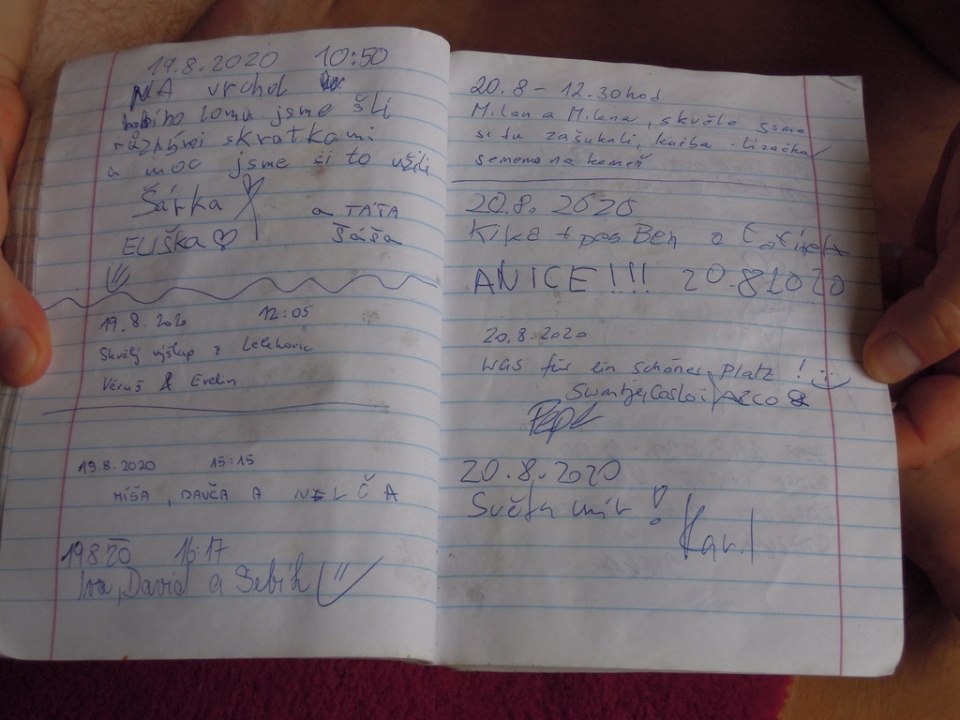 19.8.2020 10:50
NA vrchol
lomu jsme šli
různými skratkami
a moc jsme si to užili
Šárka
a TÁTA
ELIŠKA
Sáša
19.8.2020 12:05
Skvělý výšlap z Lelekovic
Věruš & Evelin
19.8.2020 15:15
MÍŠA, DAVČA A NELČA
19.8.20 16:17
Iva, David a Sebík
20.8 - 12.30hod
Milan a Milena, skvěle jsme
si tu zašukali, kuřba - lízačka
semeno na kameň
20.8.2020
Kika + pes Ben a
ANICE!!! 20.8.2020
20.8.2020
Was für ein schönes Platz! :)
Swantje, Carlos,
Pepa
20.8.2020
Světu mír!
Karel